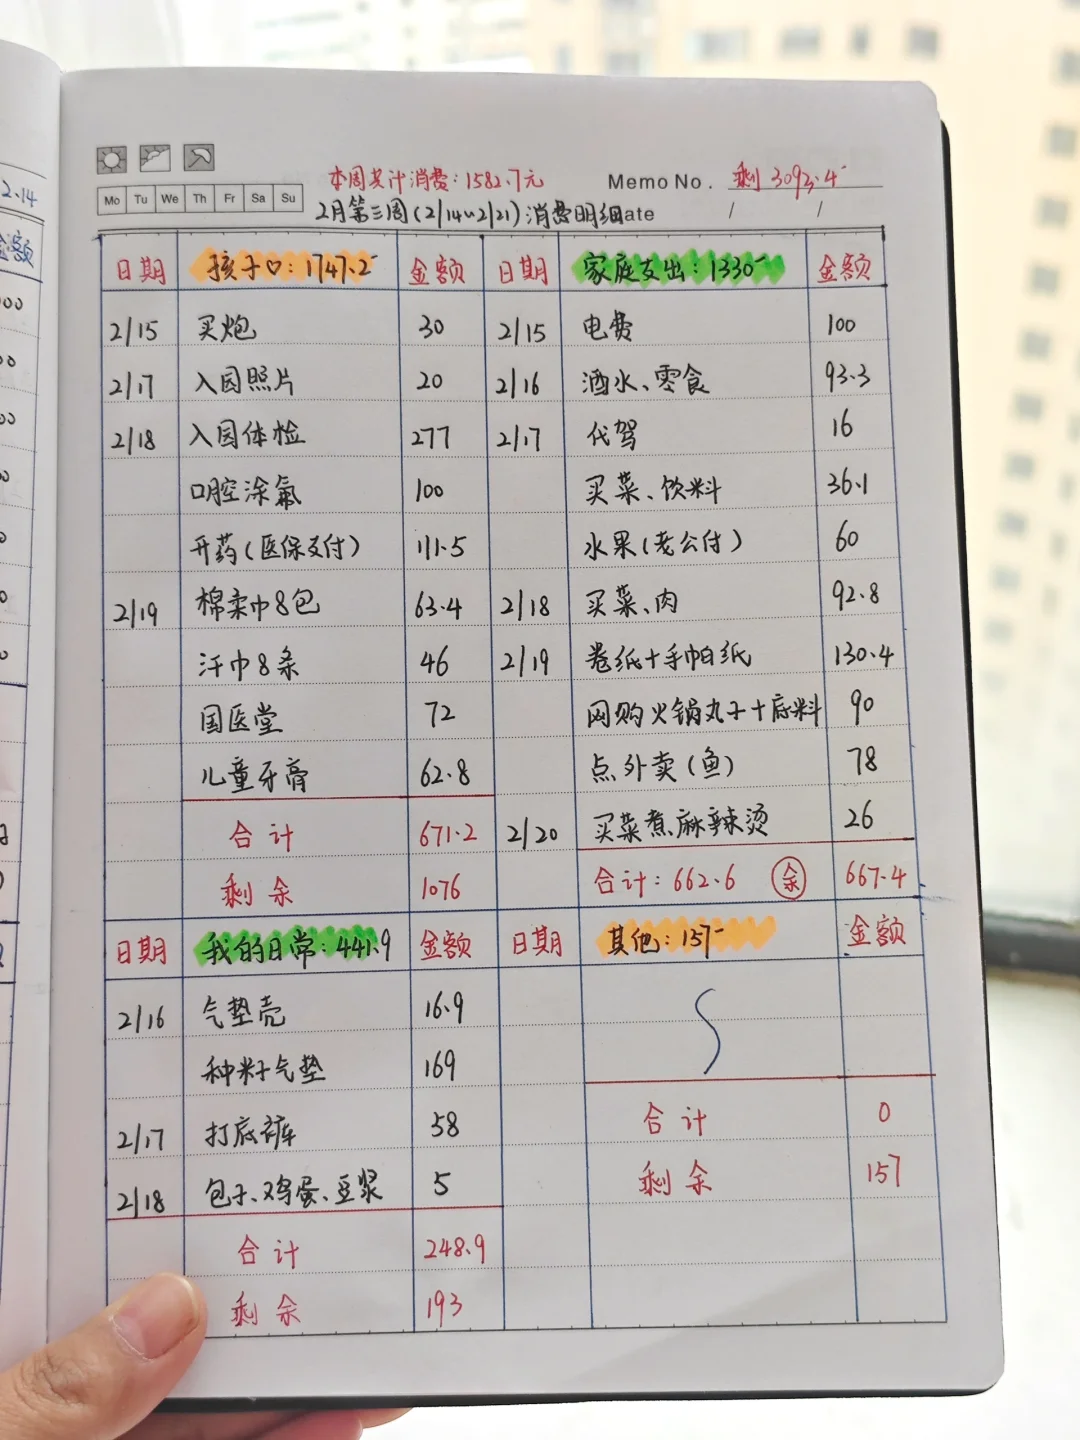 本周共计消费：1582.7元
Memo No. 剩 3093.4
Mo Tu We Th Fr Sa Su
2月第三周(2/14~2/21)消费明细ate / /
日期 孩子♡：1747.2 金额 日期 家庭支出：1330 金额
2/15 买炮 30 2/15 电费 100
2/17 入园照片 20 2/16 酒水、零食 93.3
2/18 入园体检 277 2/17 代驾 16
口腔涂氟 100 买菜、饮料 36.1
开药(医保支付) 111.5 水果(老公付) 60
2/19 棉柔巾8包 63.4 2/18 买菜、肉 92.8
汗巾8条 46 2/19 卷纸+手帕纸 130.4
国医堂 72 网购火锅丸子+底料 90
儿童牙膏 62.8 点外卖(鱼) 78
合计 671.2 2/20 买菜煮麻辣烫 26
剩余 1076 合计：662.6 余 667.4
日期 我的日常：441.9 金额 日期 其他：157 金额
2/16 气垫壳 16.9
种籽气垫 169
2/17 打底裤 58 合计 0
2/18 包子、鸡蛋、豆浆 5 剩余 157
合计 248.9
剩余 193
2.14
金额